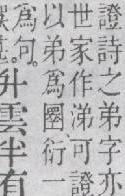 證詩之弟字亦
世家作涕可證
以弟爲圛衍一
爲句。
升雲半有